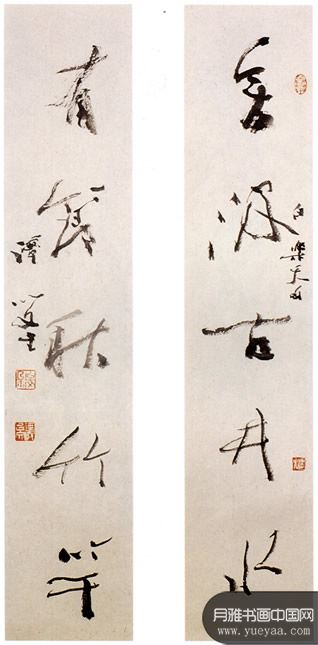 無波古井水
白樂天句
有節秋竹竿
月雅书画中国网
www.yueyaa.com